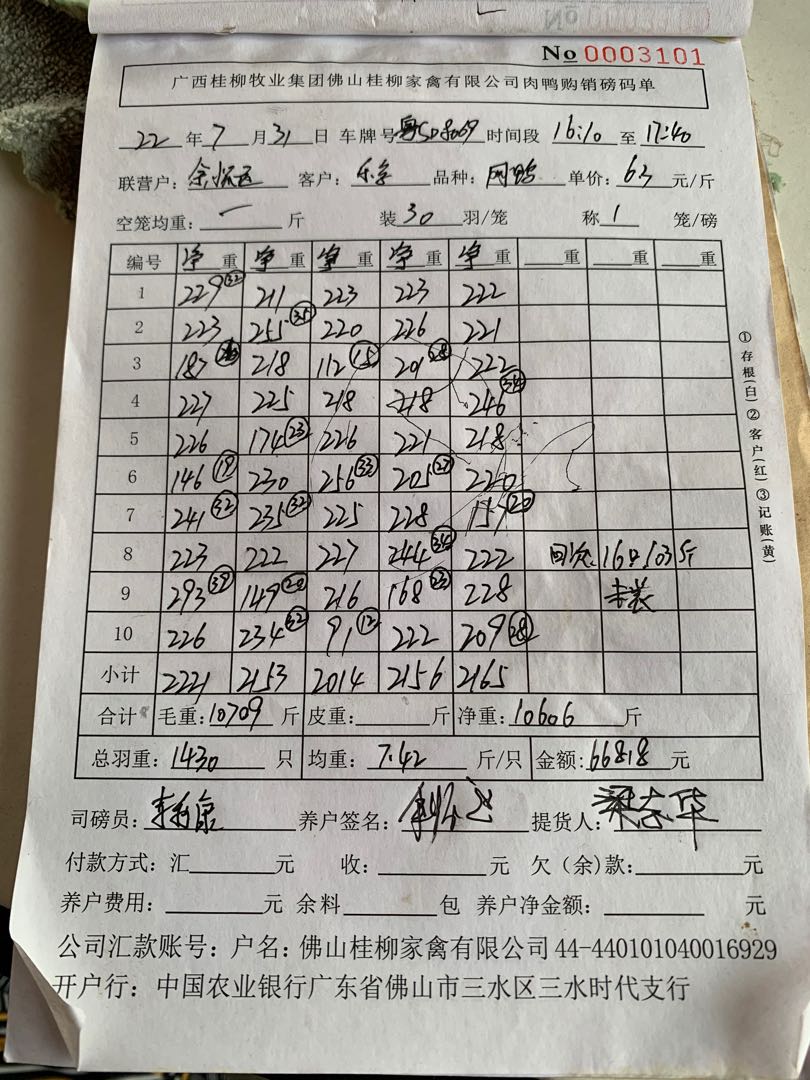 No 0003101
广西桂柳牧业集团佛山桂柳家禽有限公司肉鸭购销磅码单
22 年 7 月 31 日 车牌号 时间段 16:10 至 17:40
联营户: 客户: 乐 品种: 单价: 63 元/斤
空笼均重: 一 斤 装 30 羽/笼 称 1 笼/磅
编号 净重 净重 净重 净重 净重 重 重 重
1 229 (32) 211 223 223 222
2 223 255 (35) 220 226 221
3 187 218 112 (15) 201 (28) 222
4 227 225 218 218 246 (34)
5 226 174 (23) 226 221 218
6 146 (19) 230 256 (33) 205 (27) 220
7 241 (32) 235 (32) 225 228 157 (20)
8 223 222 227 244 (34) 222 回次:16只103斤
9 293 (39) 149 (20) 216 168 (23) 228 未装
10 226 234 (32) 91 (12) 222 209 (28)
小计 2221 2153 2014 2156 2165
合计 毛重:10709 斤 皮重: 斤 净重:10606 斤
总羽重: 1430 只 均重: 7.42 斤/只 金额: 66818 元
司磅员: 养户签名: 提货人: 梁志华
付款方式:汇 元 收: 元 欠(余)款: 元
养户费用: 元 余料 包 养户净金额: 元
公司汇款账号:户名:佛山桂柳家禽有限公司 44-440101040016929
开户行:中国农业银行广东省佛山市三水区三水时代支行
①存根(白)②客户(红)③记账(黄)